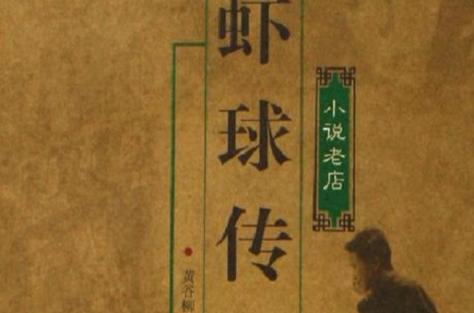 虾球传
小说老店
黄谷柳